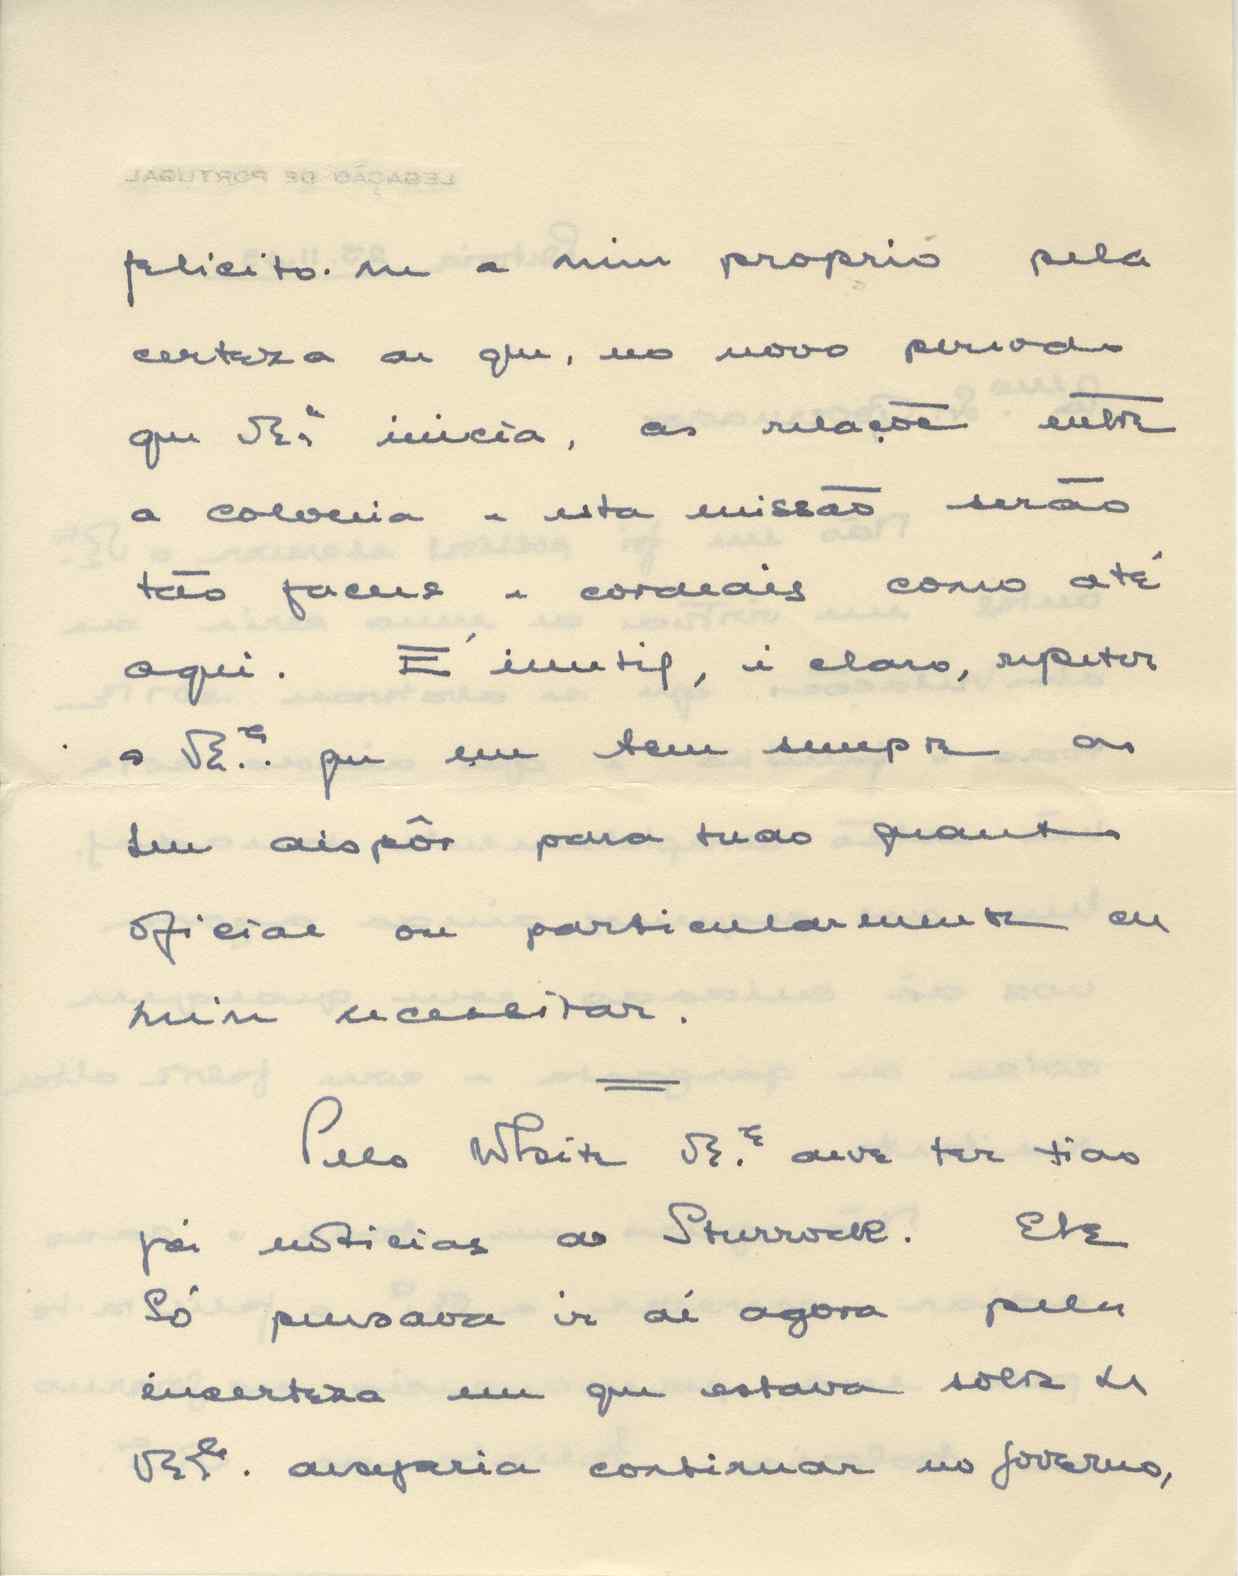 felicito-me a mim proprio pela
certeza de que, no novo periodo
que V.Ex.ª inicia, as relações entre
a colonia e esta missão serão
tão faceis e cordeais como até
aqui. É inutil, é claro, repetir
a V.Ex.ª que em tem sempre ao
seu dispôr para tudo quanto
oficial ou particularmente de
mim necessitar.
Pelo White V.Ex.ª deve ter tido
já nóticias do Sturrock. Ele
só pensava ir aí agora pela
incerteza em que estava sobre se
V.Ex.ª desejaria continuar no governo,